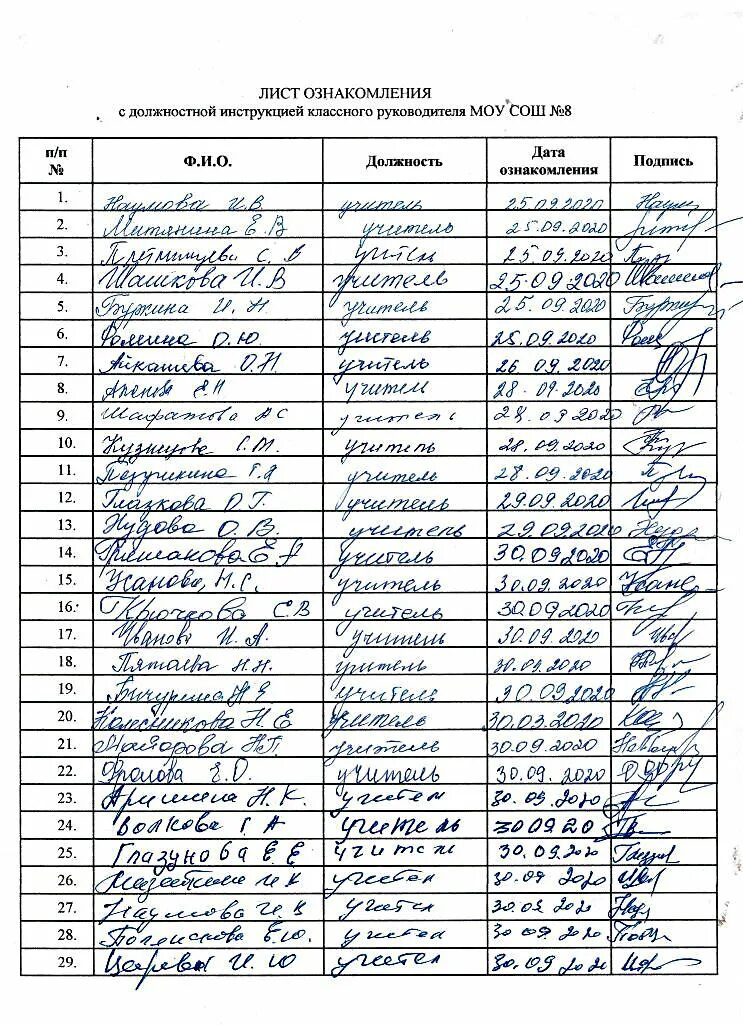 ЛИСТ ОЗНАКОМЛЕНИЯ
с должностной инструкцией классного руководителя МОУ СОШ №8
п/п № Ф.И.О. Должность Дата ознакомления Подпись
1. Наумова И.В. учитель 25.09.2020 Наум
2. Митянина Е.В учитель 25.09.2020
3. С. В учитель 25.09.2020
4. Шашкова И.В учитель 25.09.2020
5. Буркина И. Н. учитель 25.09.2020
6. Фомина О.Ю. учитель 25.09.2020
7. Айкашева О.Н. учитель 26.09.2020
8. Е.Н учитель 28.09.2020
9. учитель 2020
10. Кузнецова С.М. учитель 28.09.2020
11. учитель 28.09.2020
12. Глазкова О.Г. учитель 29.09.2020
13. Нудова О.В. учитель 29.09.2020
14. Гришанова Е учитель 30.09.2020
15. Усанова Н.С. учитель 30.09.2020
16. Крючкова С.В учитель 30.09.2020
17. Иванова И.А. учитель 30.09.2020 Ива
18. Пятаева Н.Н. учитель 30.09.2020
19. Бичурина учитель 30.09.2020
20. Колесникова Н.Е учитель 30.03.2020
21. Майорова Н.П. учитель 30.09.2020
22. Фролова Е.О. учитель 30.09.2020
23. Аришина Н.К. учител 30.09.2020
24. Волкова Г.А учитель 30.09.20
25. Глазунова Е.Е учитель 30.09.2020
26. учител 30.09 2020
27. Наумова И.В учител 30.09 2020
28. Е.Ю. учител 30.09 2020
29. Царёва И.Ю учител 30.09 2020